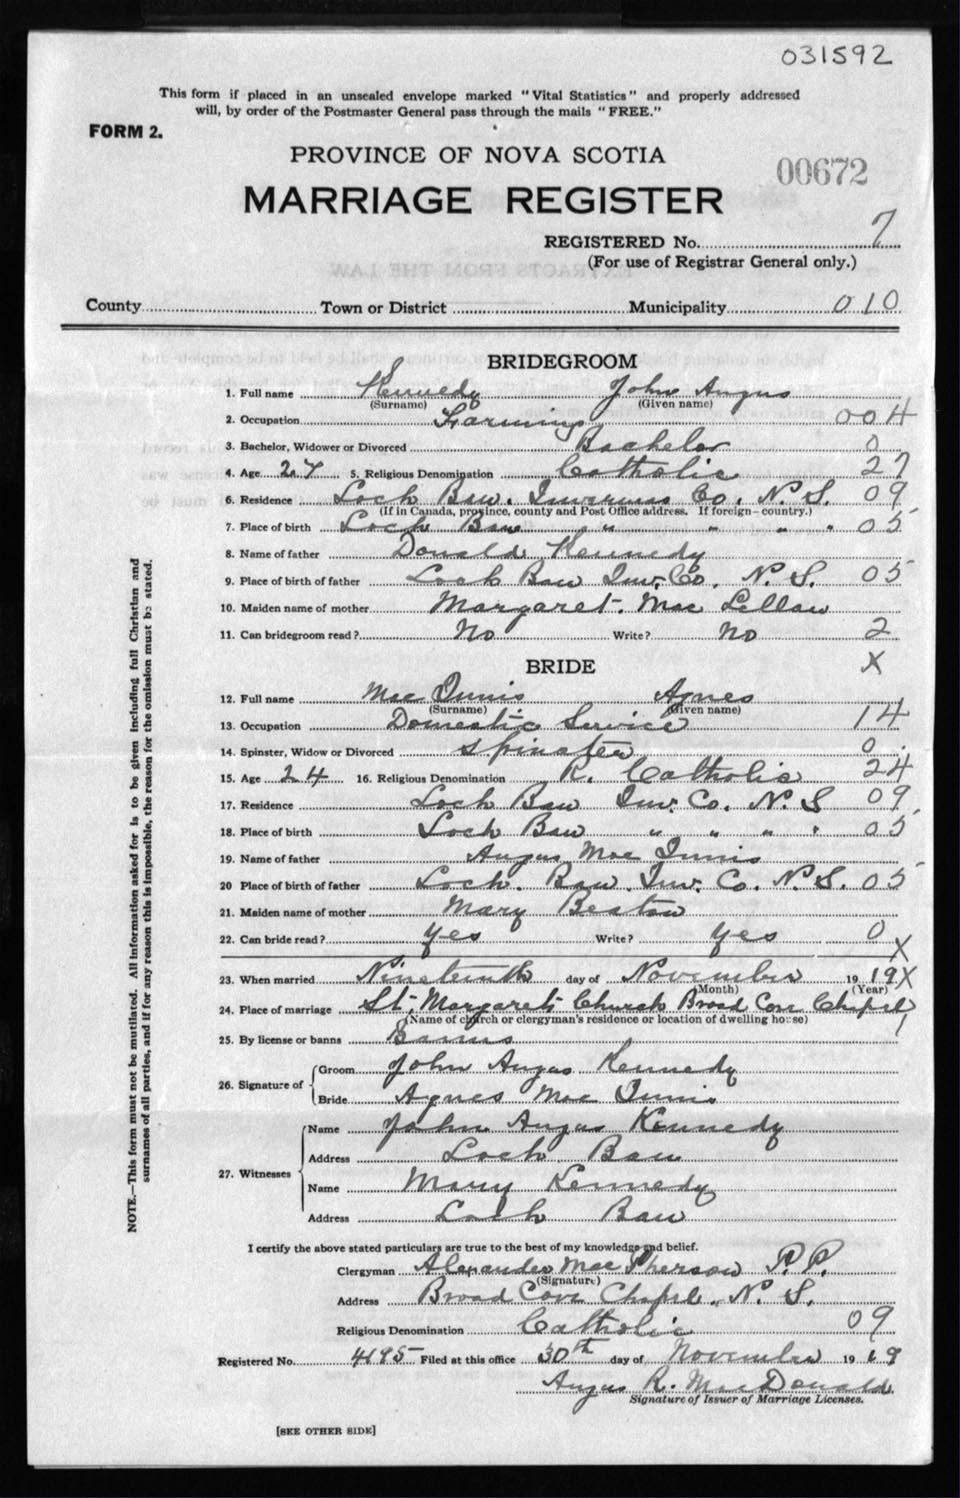 031592
This form if placed in an unsealed envelope marked "Vital Statistics" and properly addressed
will, by order of the Postmaster General pass through the mails "FREE."
FORM 2.
PROVINCE OF NOVA SCOTIA
00672
MARRIAGE REGISTER
REGISTERED No. 7
(For use of Registrar General only.)
EXTRACTS FROM THE LAW
County Town or District Municipality 010
BRIDEGROOM
1. Full name Kennedy John Angus
(Surname) (Given name)
2. Occupation Farming 004
3. Bachelor, Widower or Divorced Bachelor 0
4. Age 27 5. Religious Denomination Catholic 27
6. Residence Loch Ban. Inverness Co. N. S. 09
(If in Canada, province, county and Post Office address. If foreign-country.)
7. Place of birth Loch Ban " " " " 05
8. Name of father Donald Kennedy
9. Place of birth of father Loch Ban Inv. Co. N. S. 05
10. Maiden name of mother Margaret Mac Lellan
11. Can bridegroom read? No Write? No 2
BRIDE X
12. Full name Mac Innis Agnes
(Surname) (Given name)
13. Occupation Domestic Service 14
14. Spinster, Widow or Divorced Spinster 0
15. Age 24 16. Religious Denomination R. Catholic 24
17. Residence Loch Ban Inv. Co. N. S 09
18. Place of birth Loch Ban " " " " 05
19. Name of father Angus Mac Innis
20 Place of birth of father Loch. Ban. Inv. Co. N. S. 05
21. Maiden name of mother Mary Beaton
22. Can bride read? Yes Write? Yes 0
X
23. When married Nineteenth day of November 19 19 X
(Month) (Year)
24. Place of marriage St. Margaret's Church Broad Cove Chapel
(Name of church or clergyman's residence or location of dwelling house) 1
25. By license or banns Banns
26. Signature of Groom John Angus Kennedy
Bride Agnes Mac Innis
27. Witnesses
Name John Angus Kennedy
Address Loch Ban
Name Mary Kennedy
Address Loch Ban
I certify the above stated particulars are true to the best of my knowledge and belief.
Clergyman Alexander Mac Pherson P. P.
(Signature)
Address Broad Cove Chapel, N. S.
Religious Denomination Catholic 09
Registered No. 4195 Filed at this office 30th day of November 19 19
Angus R. MacDonald
Signature of Issuer of Marriage Licenses.
[SEE OTHER SIDE]
NOTE.—This form must not be mutilated. All information asked for is to be given including full Christian and
surnames of all parties, and if for any reason this is impossible, the reason for the omission must be stated.